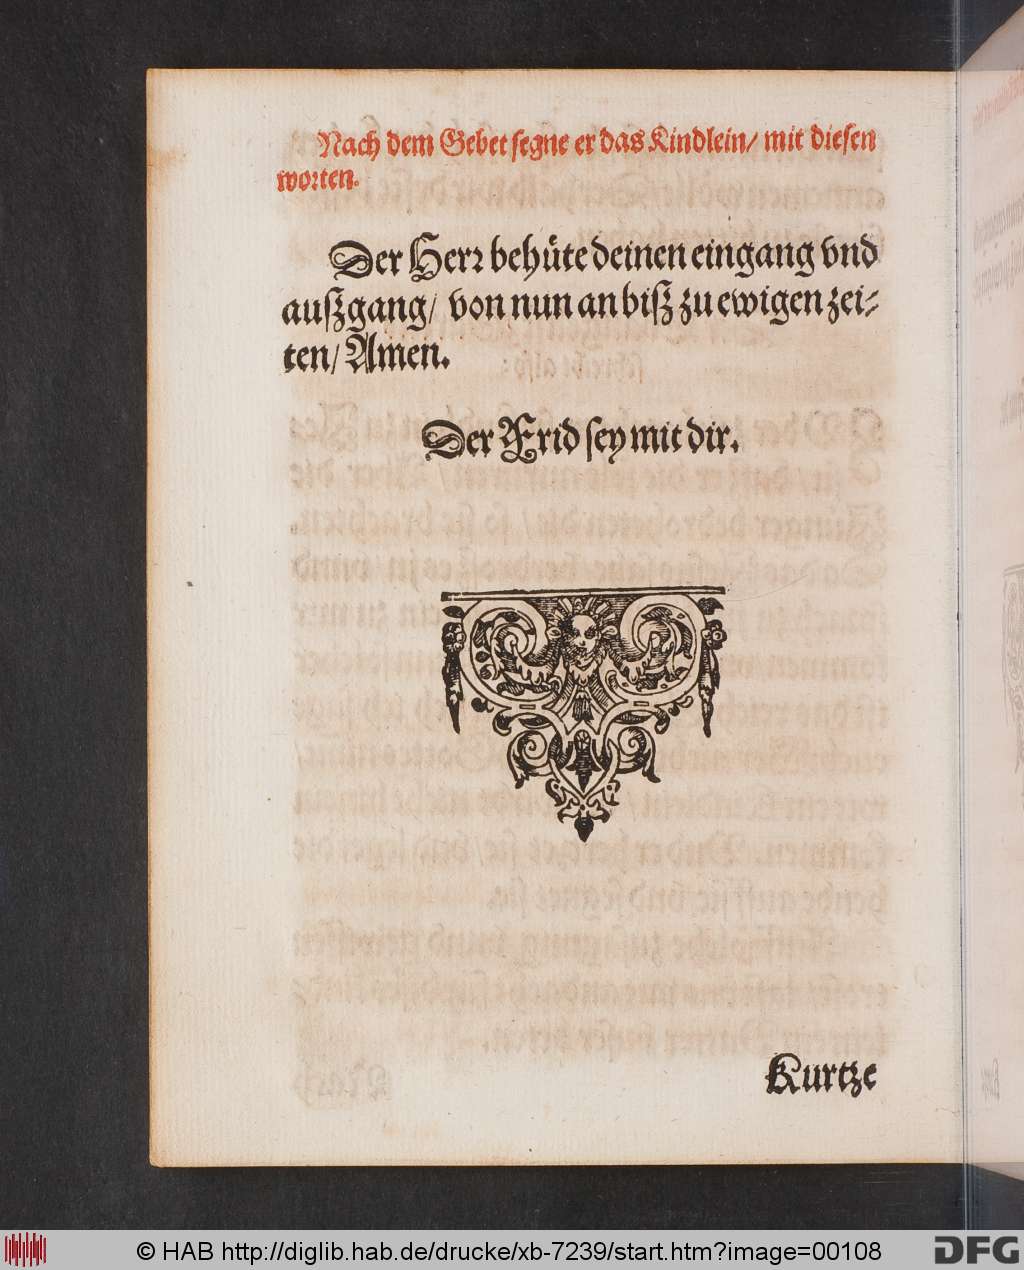 Nach dem Gebet segne er das Kindlein/ mit diesen
worten.
Der Herr behüte deinen eingang vnd
auszgang/ von nun an bisz zu ewigen zei-
ten/ Amen.
Der Frid sey mit dir.
Kurtze
© HAB http://diglib.hab.de/drucke/xb-7239/start.htm?image=00108
DFG